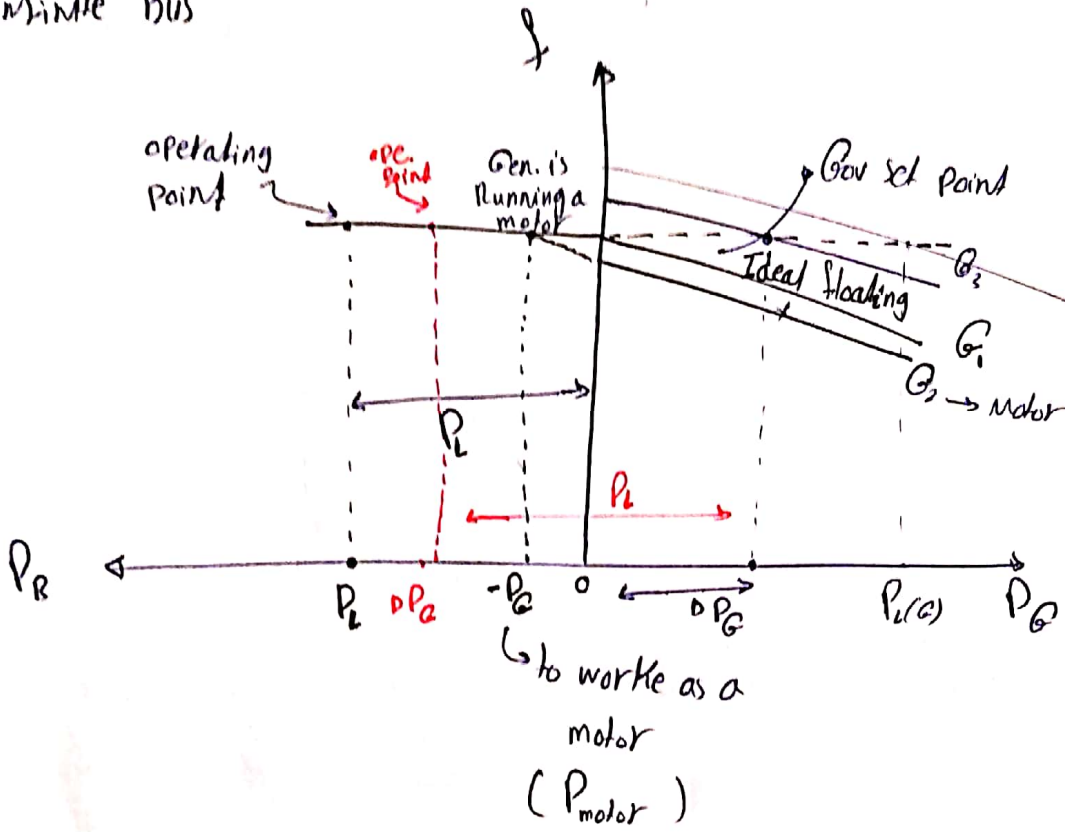 Bus
f
operating
point
ope.
point
Gen. is
Running a
motor
Gov set point
G3
Ideal floating
G1
G2 → Motor
PL
PL
PB
PL
DPG
-PG
0
DPG
PL(G)
PG
to worke as a
motor
(Pmotor)